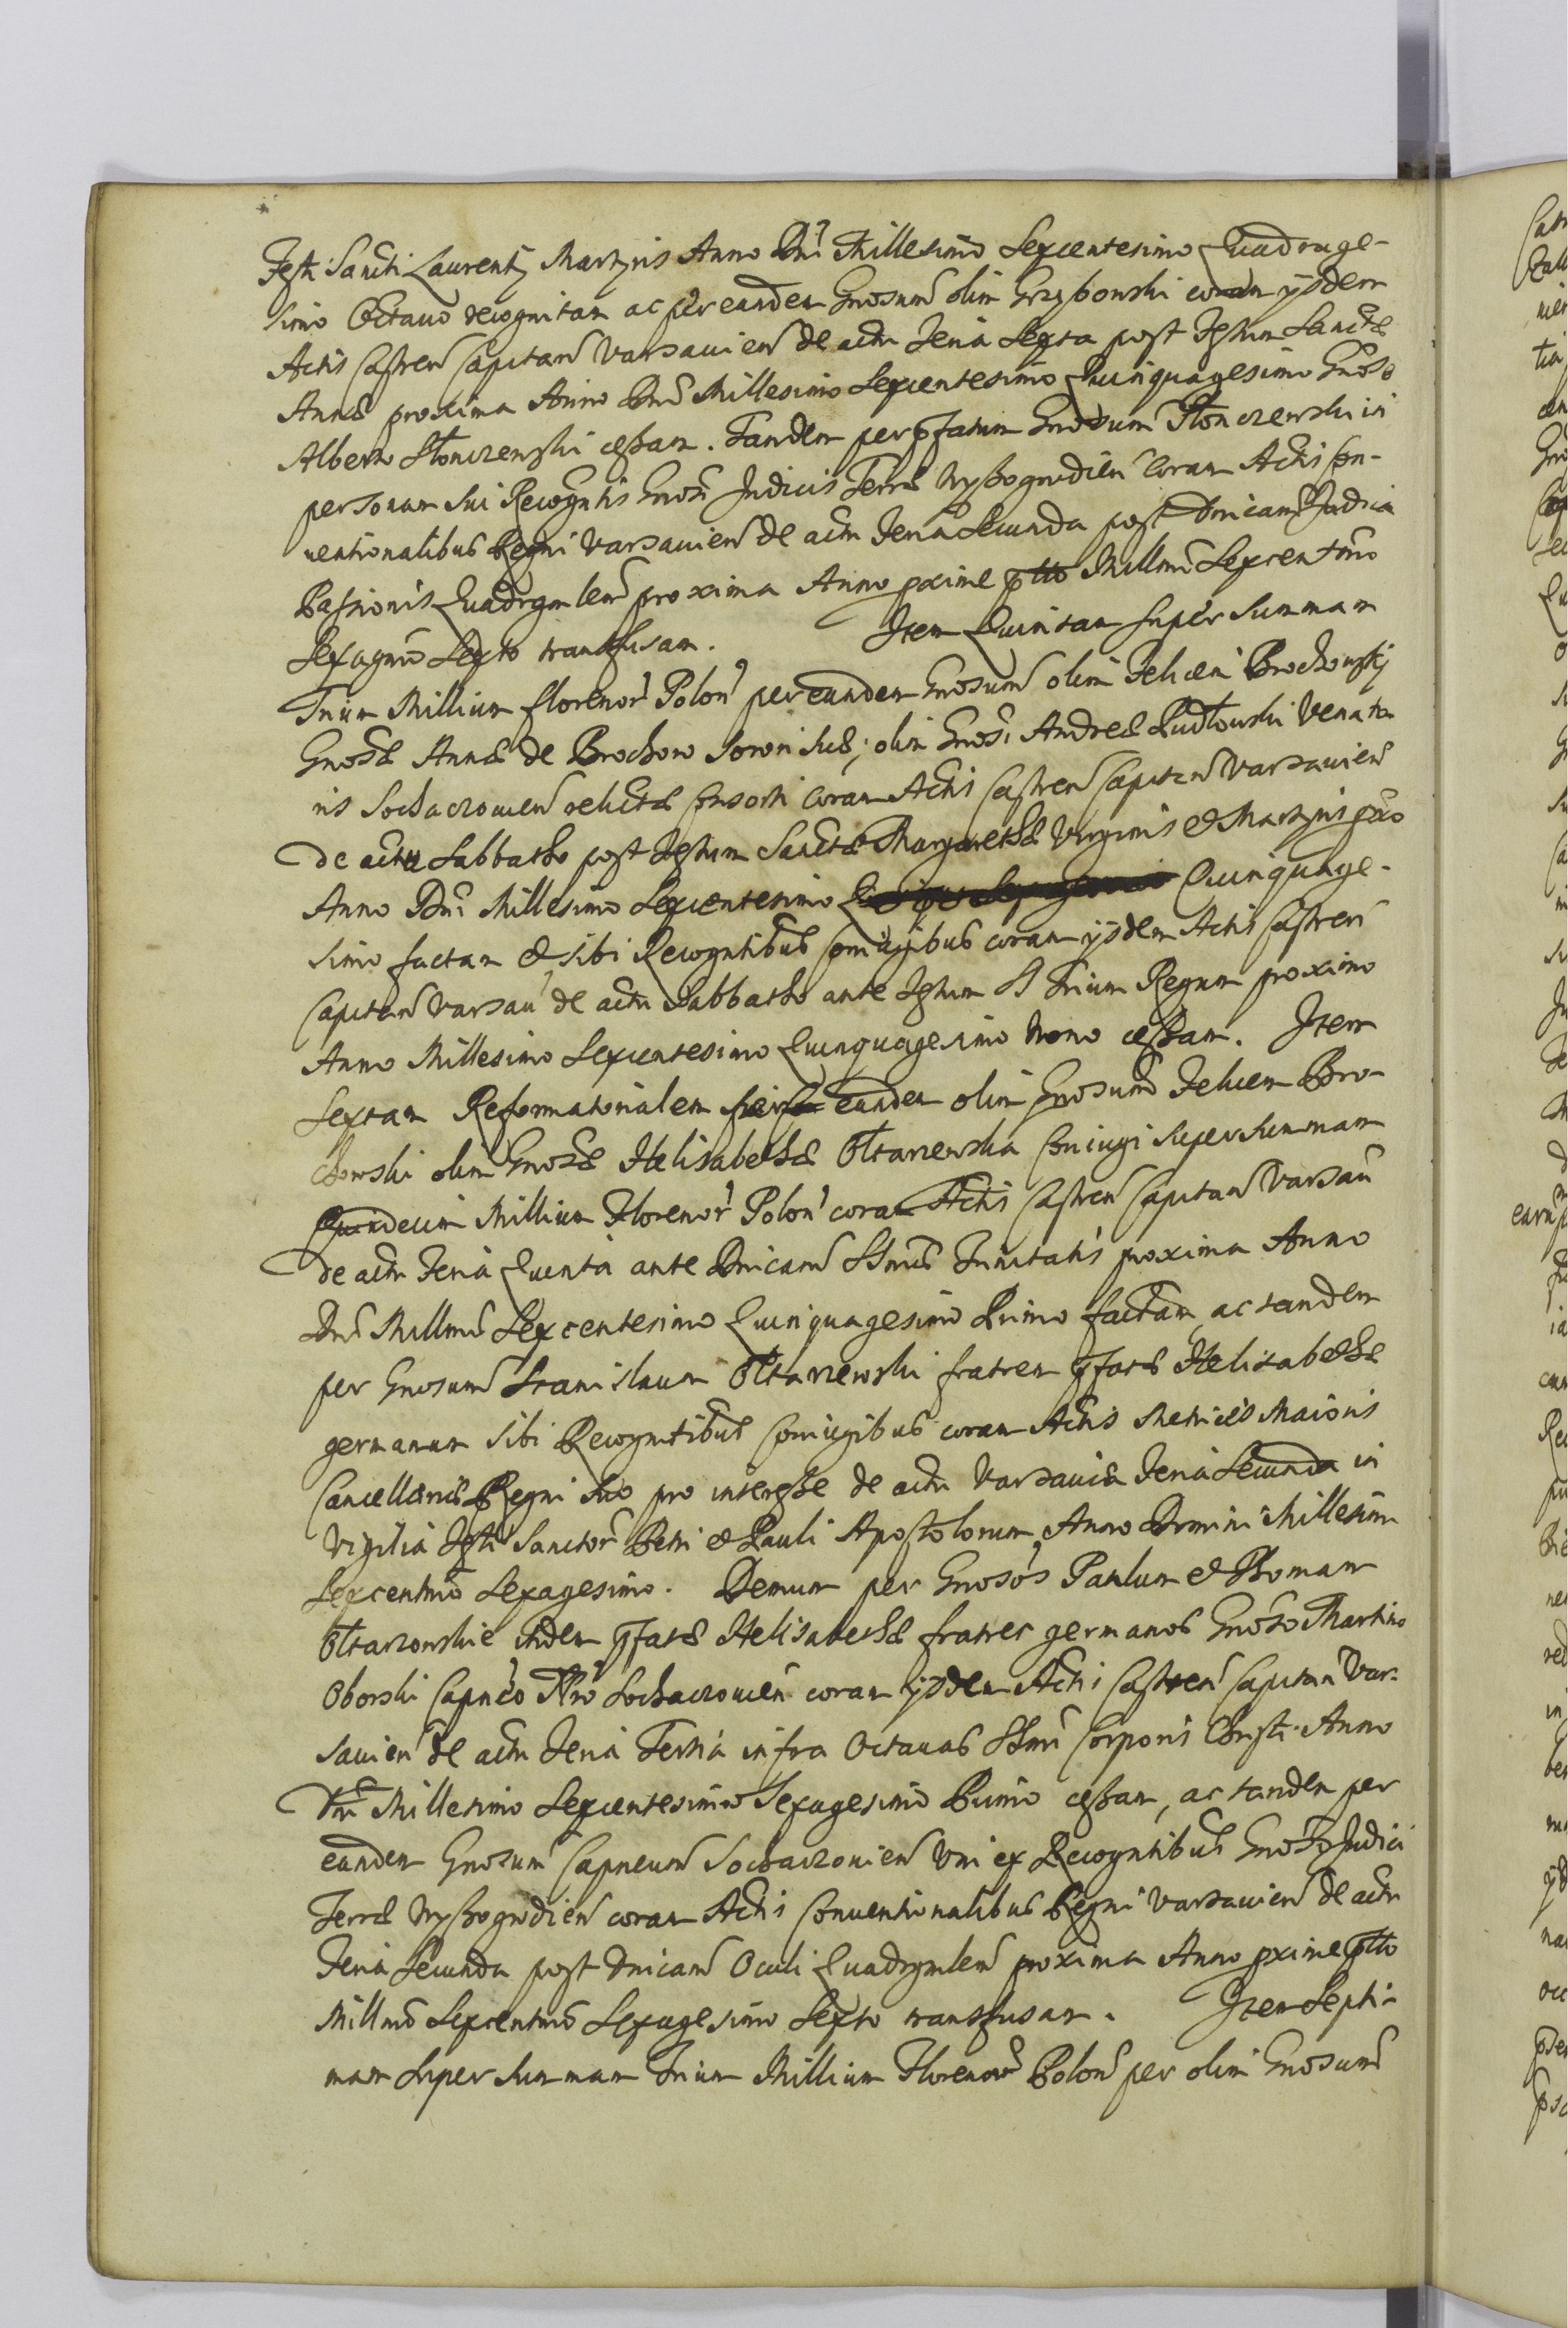 Festi Sancti Laurentij Martyris Anno Dni Millesimo Sexcentesimo Quadrage-
simo Octavo recognitam ac per eundem Gnosum olim Grzybowski coram ijsdem
Actis Castren Capitan Varsavien de actu Feria Sexta post Festum Sanctæ
Annæ proxima Anno Dni Millesimo Sexcentesimo Quinquagesimo Gnoso
Alberto Słonczewski cessam. Tandem per pfatum Gnosum Słonczewski in
personam sui Recogntis Gnosi Judicis Terræ Wyszogrodien coram Actis Con-
ventionalibus Regni Varsavien de actu Feria Secunda post Dnicam Judica
Passionis Quadrgmlem proxima Anno pxime ptto Millmo Sexcentmo
Sexagmo Sexto transfusam. Item Quintam super summam
Trium Millium florenor Polon per eundem Gnosum olim Felicem Brochowskj
Gnosæ Annæ de Brochow sorori suæ, olim Gnosi Andreæ Rudłowski Venato
ris Sochaczovien relictæ Consorti coram Actis Castren Capitan Varsavien
de actu Sabbatho post Festum Sanctæ Margarethæ Virginis et Martyris pxo
Anno Dni Millesimo Sexcentesimo Quinquage-
simo factam et sibi Recogntibus Coniugibus coram ijsdem Actis Castren
Capitan Varsavi de actu Sabbatho ante Festum SS Trium Regum proximo
Anno Millesimo Sexcentesimo Quinquagesimo Nono cessam. Item
Sextam Reformatorialem per eundem olim Gnosum Felicem Bro-
chowski olim Gnosæ Helisabethæ Ołtarzewska Coniugi super summam
Quindecim Millium Florenor Polon coram Actis Castren Capitan Varsavi
de actu Feria Quinta ante Dnicam SSmæ Trinitatis proxima Anno
Dni Millmo Sexcentesimo Quinquagesimo Primo factam, ac tandem
per Gnosum Stanislaum Ołtarzewski fratrem pfatæ Helisabethæ
germanum sibi Recogntibus Coniugibus coram Actis Metrices Maioris
Cancellariæ Regni suo pro interesse de actu Varsaviæ Feria Secunda in
Vigilia Festi Sanctor Petri et Pauli Apostolorum, Anno Domini Millesimo
Sexcentmo Sexagesimo. Demum per Gnosos Paulum et Thomam
Ołtarzowskie itidem pfatæ Helisabethæ fratres germanos Gnoso Martino
Oborski Capneo Nro Sochaczovien coram ijsdem Actis Castren Capitan Var-
savien de actu Feria Tertia infra Octavas SSmi Corporis Christi Anno
Dni Millesimo Sexcentesimo Sexagesimo Primo cessam, ac tandem per
eundem Gnosum Capneum Sochaczovien Uni ex Recogntibus Gnoso Judici
Terræ Wyszogrodien coram Actis Conventionalibus Regni Varsavien de actu
Feria Secunda post Dnicam Oculi Quadrgmlem proxima Anno pxime ptto
Millmo Sexcentmo Sexagesimo Sexto transfusam. Item Septi-
mam super summam Trium Millium Florenor Polon per olim Gnosum